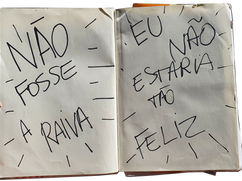 NÃO
FOSSE
A RAIVA
EU
NÃO
ESTARIA
TÃO
FELIZ